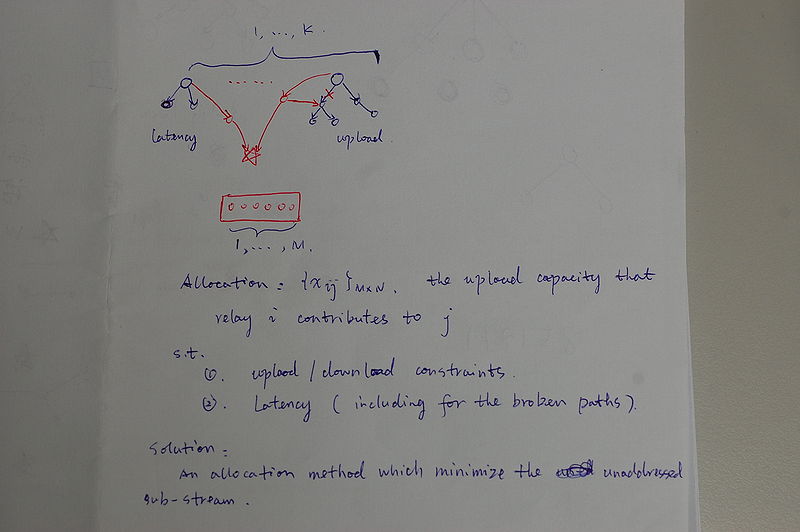 1, ..., K.
latency
upload.
1, ..., M.
Allocation: {x_ij}_M×N. the upload capacity that
relay i contributes to j
s.t.
①. upload / download constraints.
②. Latency (including for the broken paths).
Solution:
An allocation method which minimize the unaddressed
sub-stream.